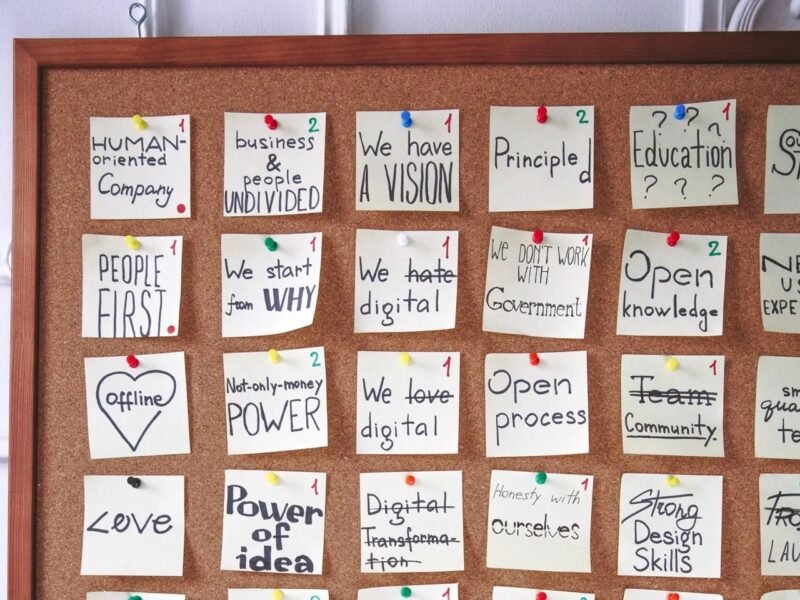 1
HUMAN-
oriented
Company
2
business
&
people
UNDIVIDED
1
We have
A VISION
2
Principled
1
? ? ?
Education
? ? ?
1
PEOPLE
FIRST.
1
We start
from WHY
1
We hate
digital
1
We DON'T WORK
WITH
Government
2
Open
knowledge
NE
US
EXPE
Offline
2
Not-only-money
POWER
1
We love
digital
Open
process
1
Team
Community.
sm
qua
te
Love
1
Power
of
idea
Digital
Transforma-
tion
1
Honesty with
ourselves
Strong
Design
Skills
LAU